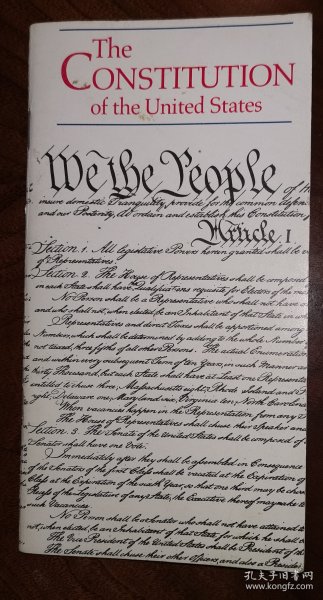 The
CONSTITUTION
of the United States
We the People
insure domestic Tranquility, provide for the common defen
and our Posterity, do ordain and establish this Constitution
Article. I.
Section. 1. All legislative Powers herein granted shall be v
of Representatives.
Section. 2. The House of Representatives shall be composed
in each State shall have Qualifications requisite for Electors of the m
No Person shall be a Representative who shall not have a
and who shall not, when elected, be an Inhabitant of that State in w
Representatives and direct Taxes shall be apportioned among
Numbers, which shall be determined by adding to the whole Number
not taxed, three fifths of all other Persons. The actual Enumeration
and within every subsequent Term of ten Years, in such Manner as
thirty Thousand, but each State shall have at Least one Representat
entitled to chuse three, Massachusetts eight, Rhode Island and P
eight, Delaware one, Maryland six, Virginia ten, North Carolina
When vacancies happen in the Representation from any S
The House of Representatives shall chuse their Speaker and
Section. 3. The Senate of the United States shall be composed of
Senator shall have one Vote.
Immediately after they shall be assembled in Consequence
of the Senators of the first Class shall be vacated at the Expiration of
Class at the Expiration of the sixth Year, so that one third may be chosen
Recess of the Legislature of any State, the Executive thereof may make te
such Vacancies.
No Person shall be a Senator who shall not have attained to
not, when elected, be an Inhabitant of that State for which he shall b
The Vice President of the United States shall be President of the
The Senate shall chuse their other Officers, and also a Presiden
孔夫子旧书网